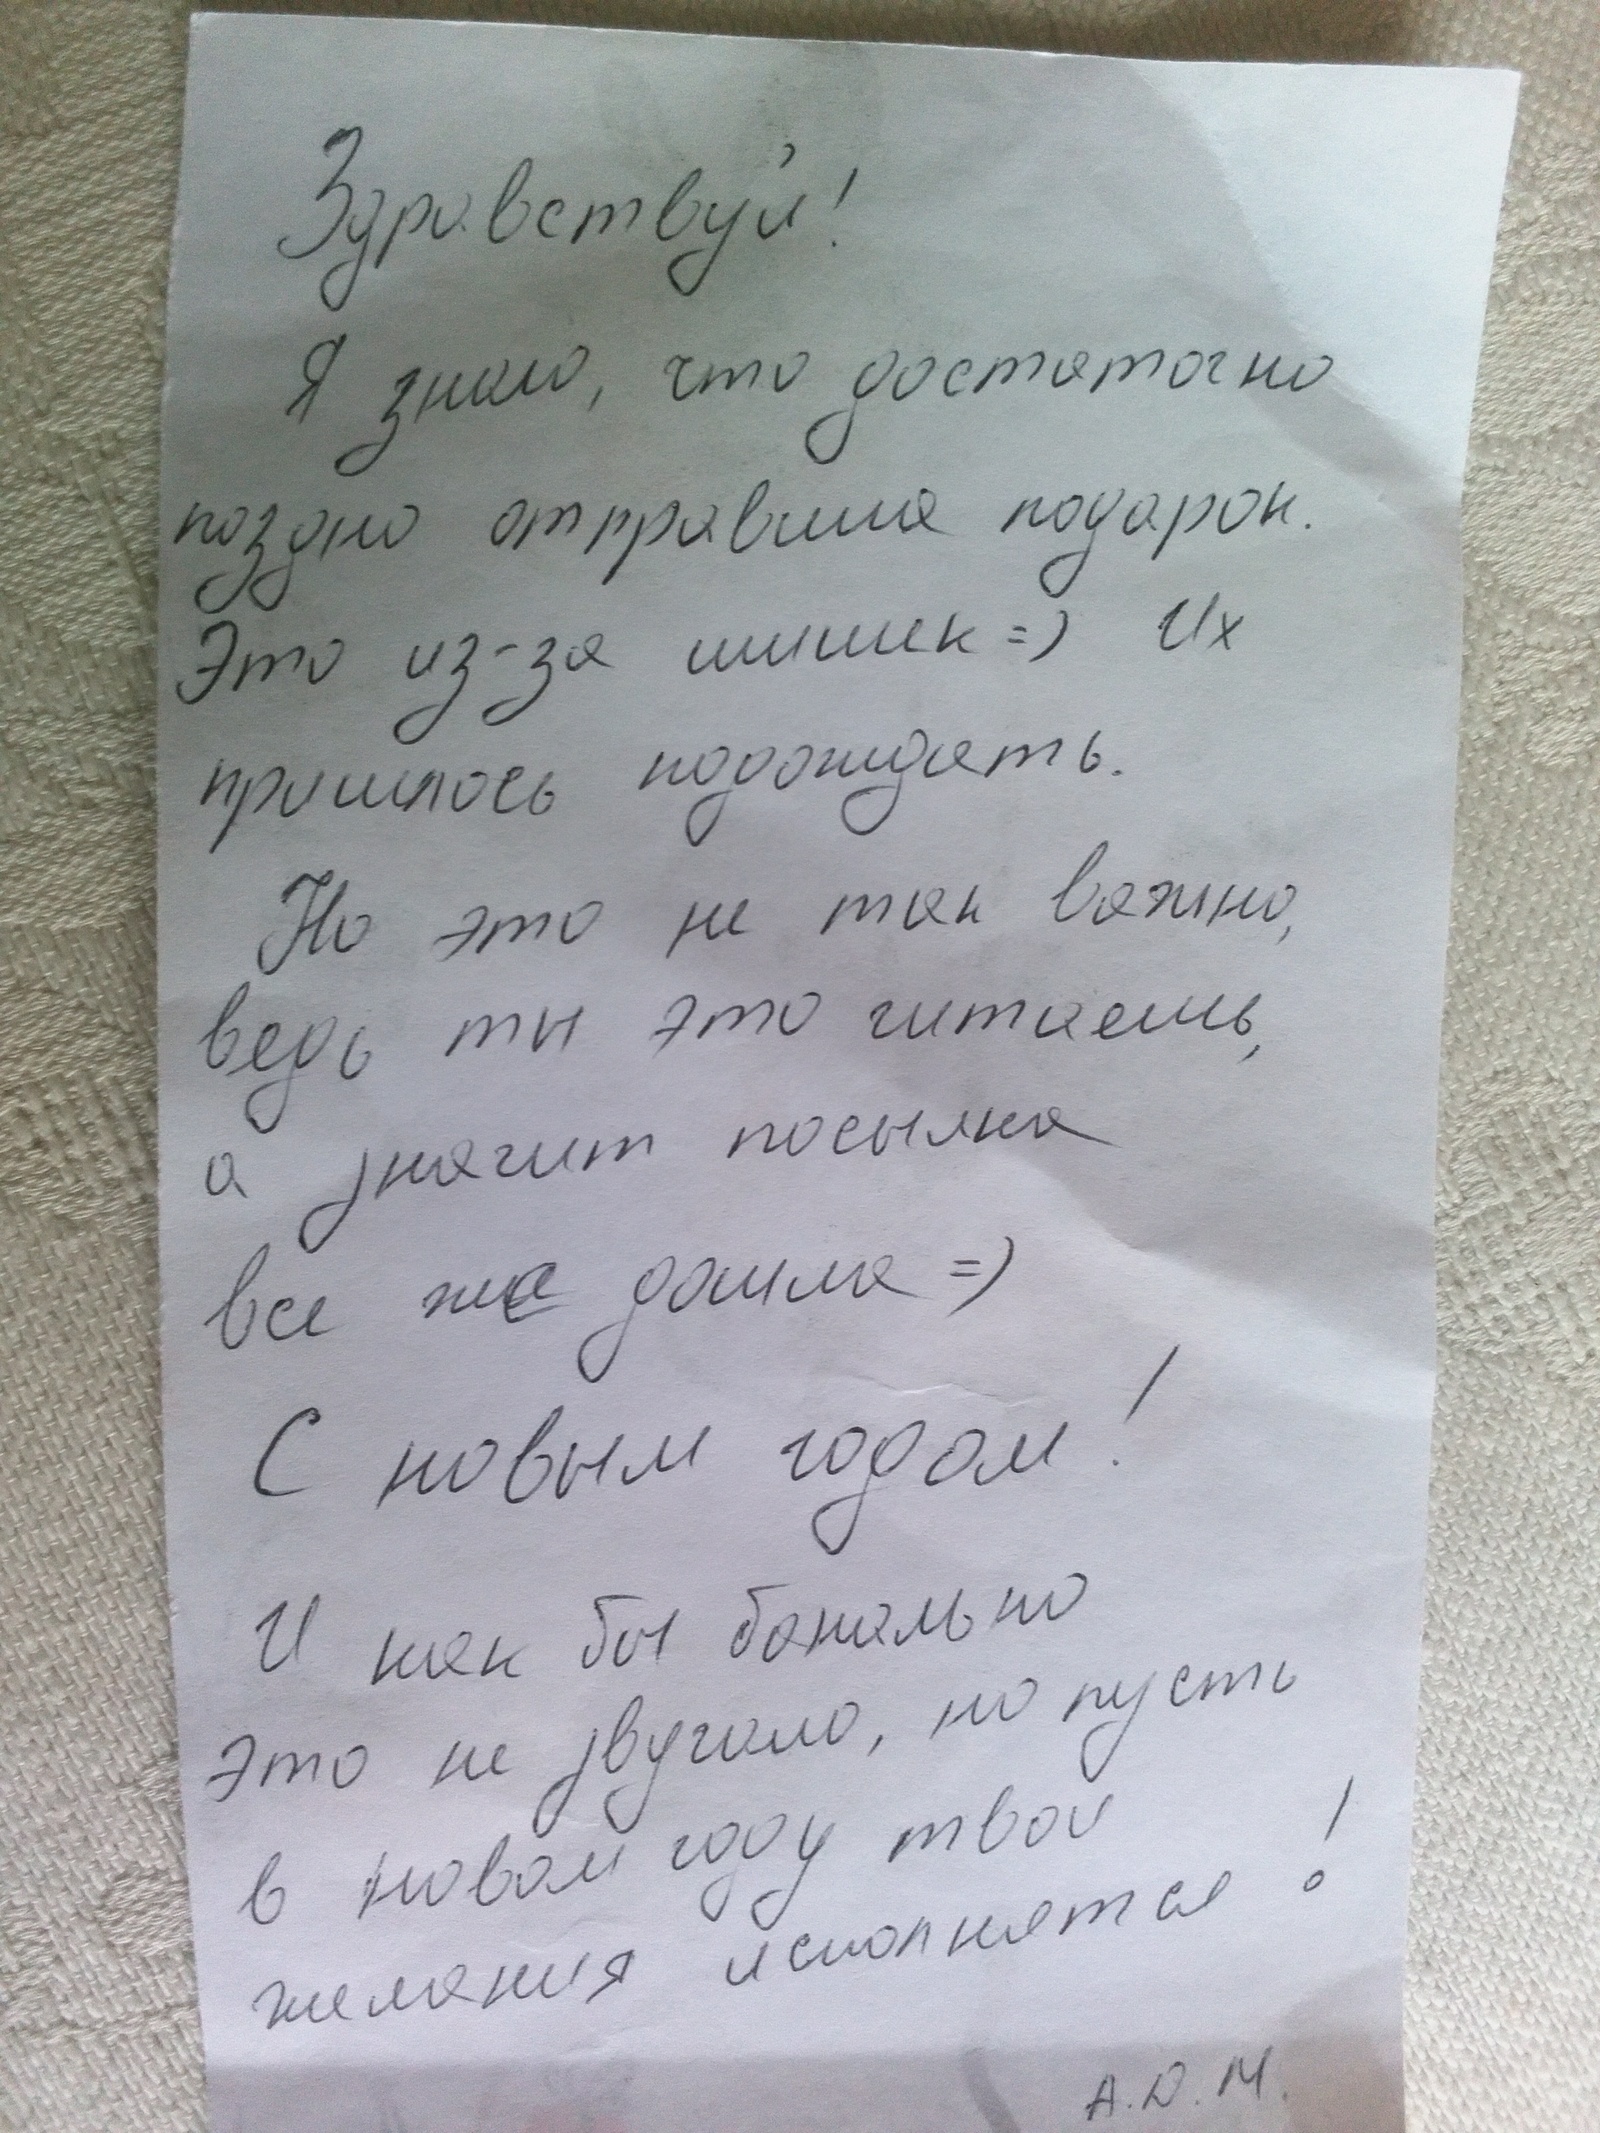 Здравствуй!
Я знаю, что достаточно
поздно отправила подарок.
Это из-за шишек =) Их
пришлось подождать.
Но это не так важно,
ведь ты это читаешь,
а значит посылка
все же дошла =)
С новым годом!
И как бы банально
это не звучало, но пусть
в новом году твои
желания исполнятся!
А.Д.М.